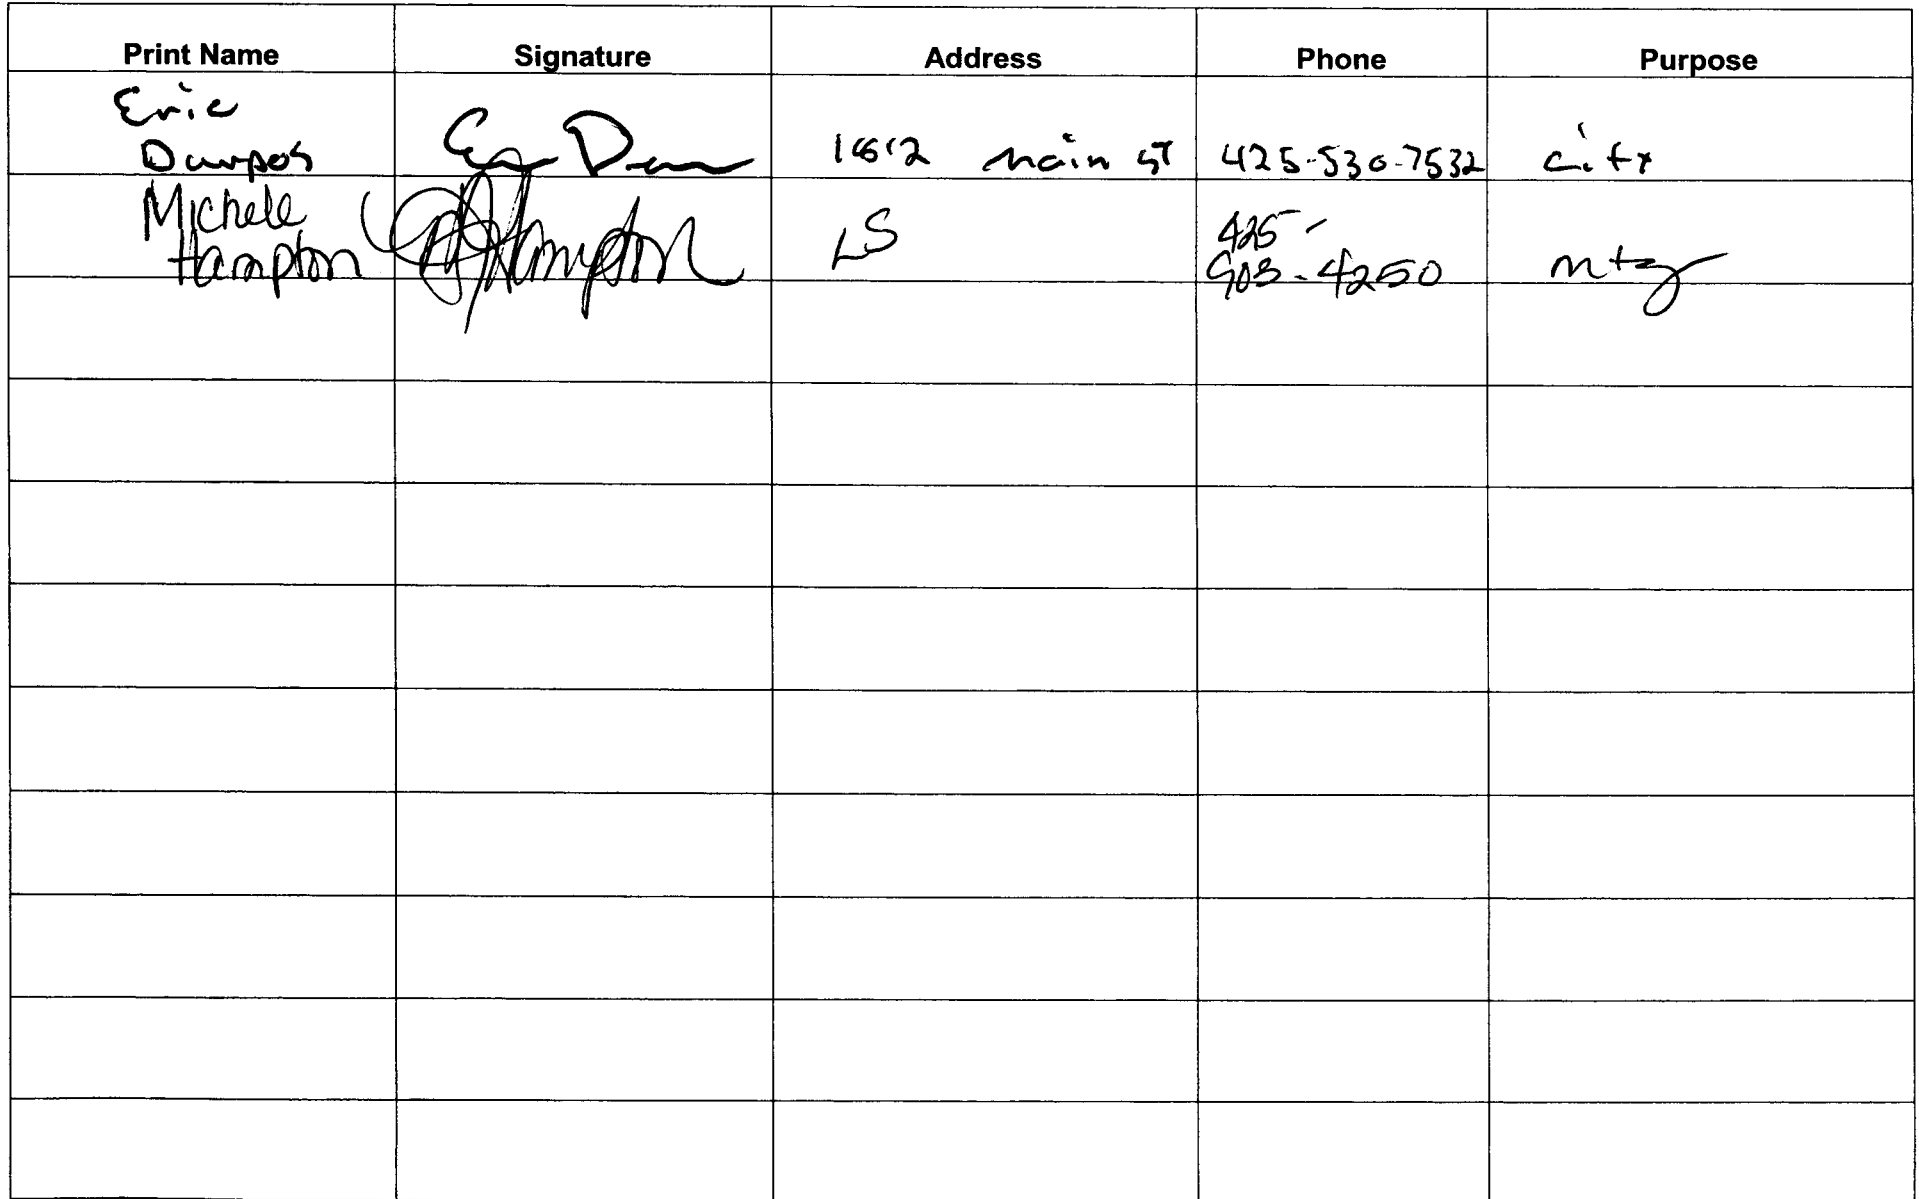 Print Name Signature Address Phone Purpose
Eric
Durpos
1812 main st 425-530-7532 city
Michele
Hampton
MHampton
LS
425-
903-4250
mtg